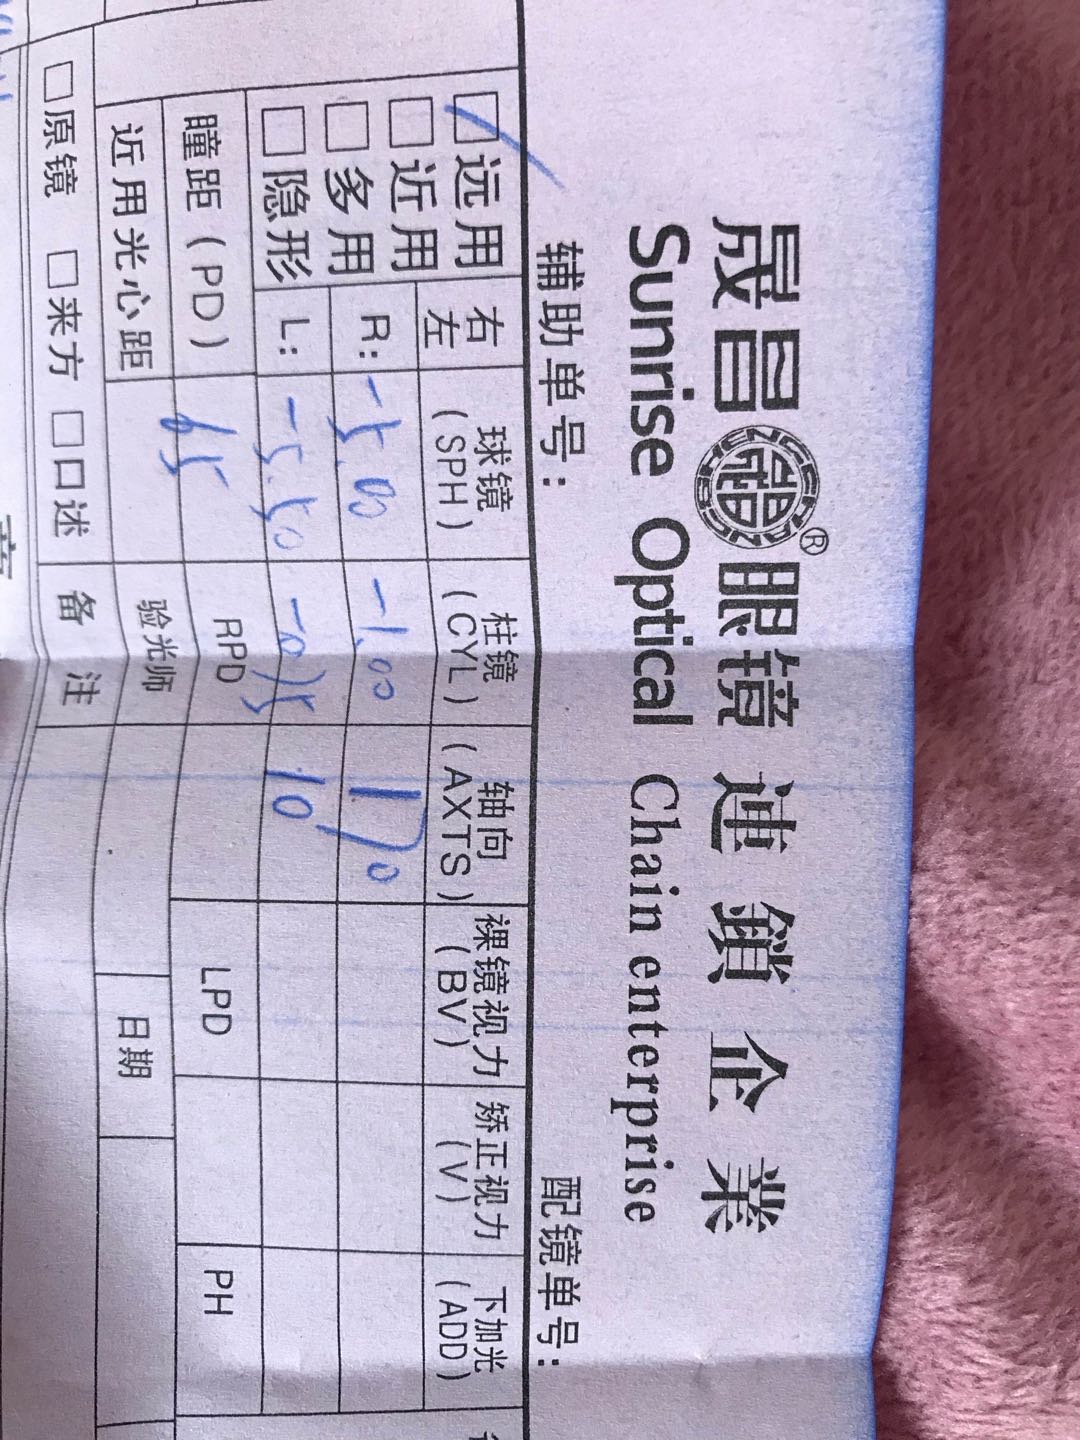 晟昌眼镜連鎖企業
Sunrise Optical Chain enterprise
辅助单号： 配镜单号：
□远用 右左 球镜(SPH) 柱镜(CYL) 轴向(AXTS) 裸镜视力(BV) 矫正视力(V) 下加光(ADD)
□近用
□多用 R: -5.00 -1.00 170
□隐形 L: -5.50 10
瞳距(PD) 65 RPD LPD PH
近用光心距 验光师 日期
□原镜 □来方 □口述 备注